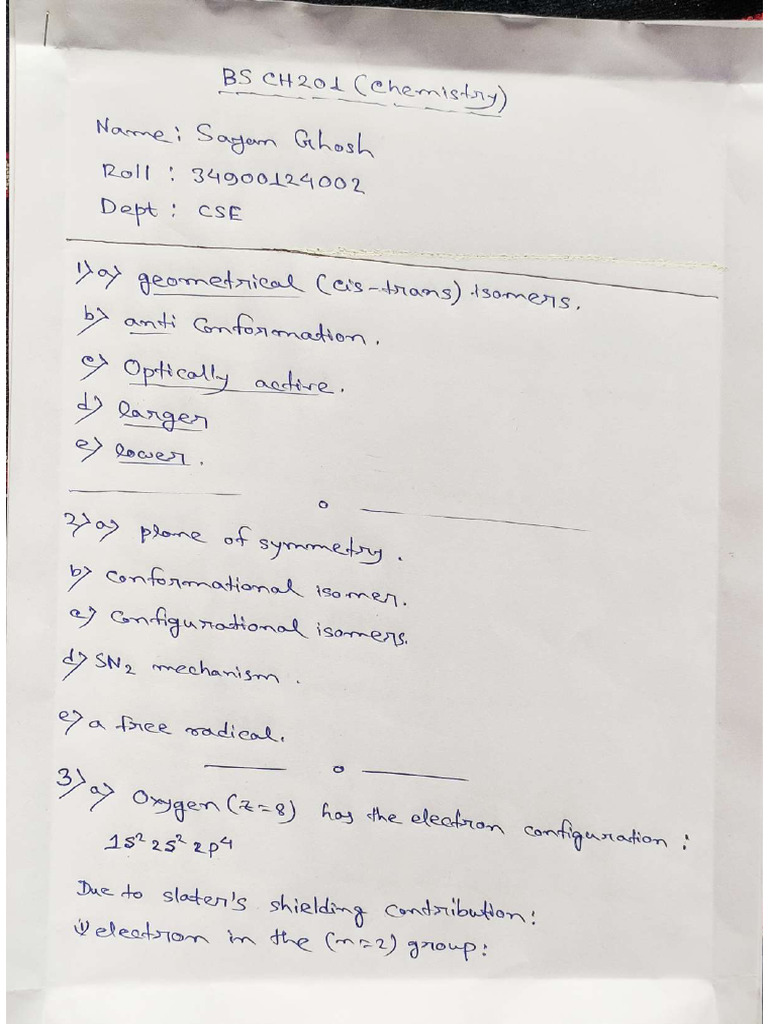 BS CH201 (Chemistry)
Name: Sayan Ghosh
Roll : 34900124002
Dept : CSE
1) a) geometrical (cis-trans) isomers.
b) anti Conformation.
c) Optically active.
d) larger
e) lower.
2) a) plane of symmetry.
b) conformational isomer.
c) configurational isomers.
d) SN2 mechanism.
e) a free radical.
3) a) Oxygen (z=8) has the electron configuration:
1s² 2s² 2p⁴
Due to slater's shielding contribution:
i) electron in the (n=2) group: